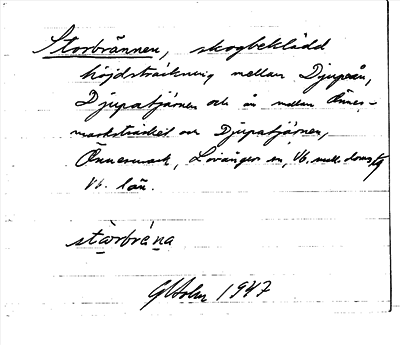 Storbrännen, skogbeklädd
höjdsträckning mellan Djupeån,
Djupatjärnen och ån mellan Önnes-
markträsket och Djupatjärnen,
Önnesmark, Lövångers sn, Vb. mell. doms
Vb. län.
stàrbréna
GHolm 1947